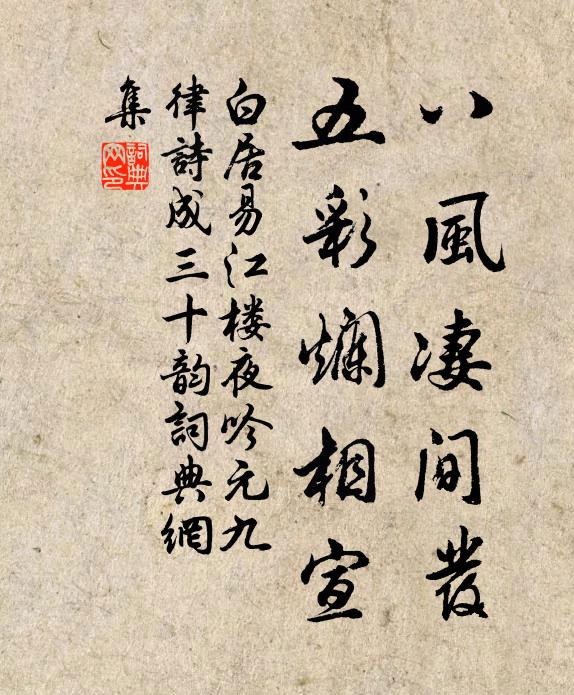 八風凄間發
五彩爛相宣
白居易江楼夜吟元九
律詩成三十韵詞典網
集
詞典
网印